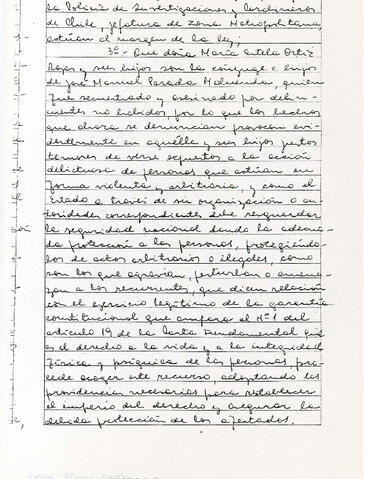 la Policía de Investigaciones y Carabineros
de Chile, jefatura de Zona Metropolitana,
actúan al margen de la ley;
3º.- Que doña María Estela Ortiz
Rojas y sus hijos son la cónyuge e hijos
de José Manuel Parada Maluenda, quien
fue secuestrado y asesinado por delin-
cuentes no habidos, por lo que los hechos
que ahora se denuncian provocan evi-
dentemente en aquélla y sus hijos justos
temores de verse expuestos a la acción
delictuosa de personas que actúan en
forma violenta y arbitraria, y como el
Estado a través de su organización o au-
toridades correspondientes debe resguardar
la seguridad nacional dando la adecua-
da protección a las personas, protegiéndo-
las de actos arbitrarios o ilegales, como
son los que agravian, perturban o amena-
zan a los recurrentes, que dicen relación
con el ejercicio legítimo de la garantía
constitucional que ampara el Nº1 del
artículo 19 de la Carta Fundamental que
es el derecho a la vida y a la integridad
física y psíquica de las personas, pro-
cede acoger este recurso, adoptando las
providencias necesarias para restablecer
el imperio del derecho y asegurar la
debida protección de los afectados.